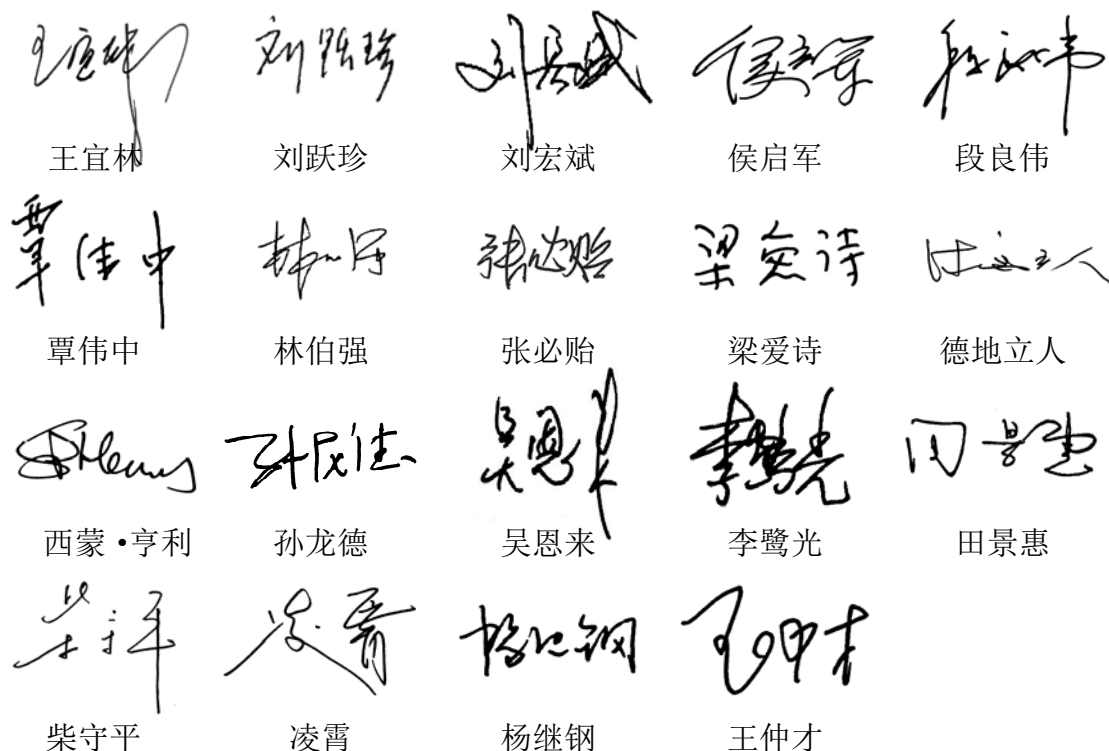 王宜林 刘跃珍 刘宏斌 侯启军 段良伟
覃伟中 林伯强 张必贻 梁爱诗 德地立人
西蒙•亨利 孙龙德 吴恩来 李鹭光 田景惠
柴守平 凌霄 杨继钢 王仲才